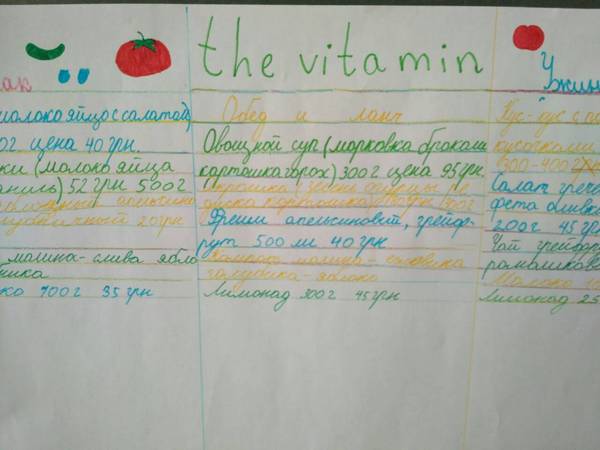 the vitamin
ак
молоко яйцо с салатом
0г. цена 40 грн.
ки (молоко яйца
52 грн 500г
апельсино
20 грн
малина-слива ябло
ника
ко 700г 35 грн
Обед и ланч
Овощной суп (морковка брокали
картошка горох) 300г цена 95 грн.
крошка
картошка
Фреши апельсиновий, грейф-
рут 500 мл 40 грн
малина-
голубика-яблоко
Лимонад 300г 45 грн
Ужин
Кус-кус с
кусочками
300-400
Салат грече
фета оливк
200г 45 гр
Чай грейфру
ромашкова
Молоко
Лимонад 25